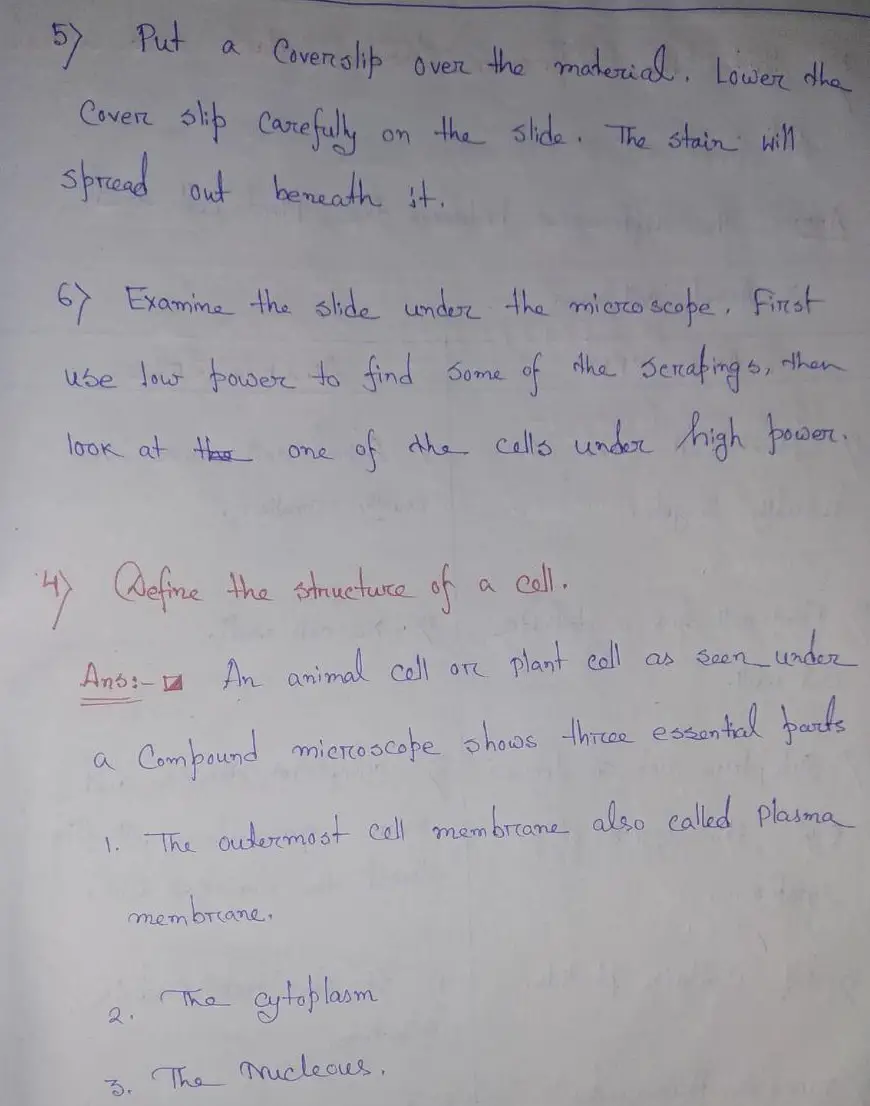 5) Put a Coverslip over the material. Lower the
Cover slip carefully on the slide. The stain will
spread out beneath it.
6) Examine the slide under the microscope. First
use low power to find some of the scrapings, then
look at the one of the cells under high power.
4) Define the structure of a cell.
Ans:- An animal cell or plant cell as seen under
a Compound microscope shows three essential parts
1. The outermost cell membrane also called plasma
membrane.
2. The cytoplasm
3. The Nucleous.